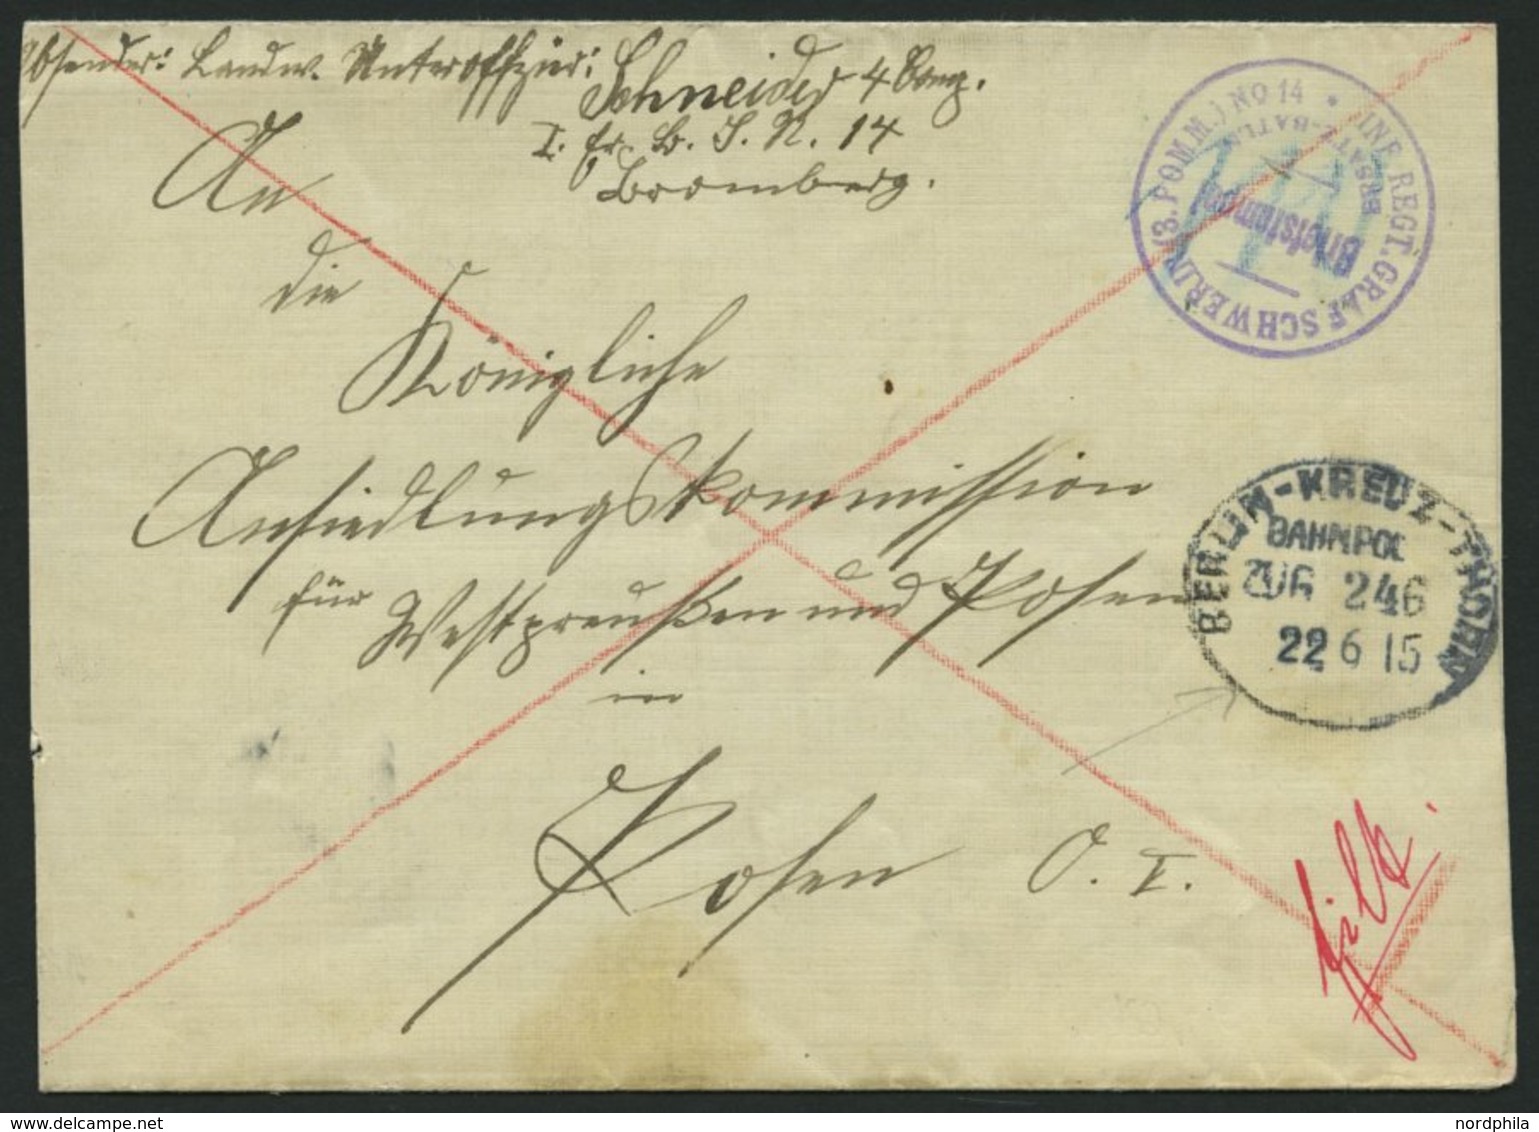 Absender: Landw. Unteroffizier: Schneider 4 Comp.
I. Ers. B. I. R. 14
Bromberg.
An
die
Königliche
Ansiedlungskommission
für Westpreußen und Posen
in
Posen O. I.
INF. REGT. GRAF SCHWERIN (3. POMM.) NO 14 *
ERSATZ-BATL.
Briefstempel
BERLIN-KREUZ-THORN
BAHNPOST
ZUG 246
22 6 15
nordphila